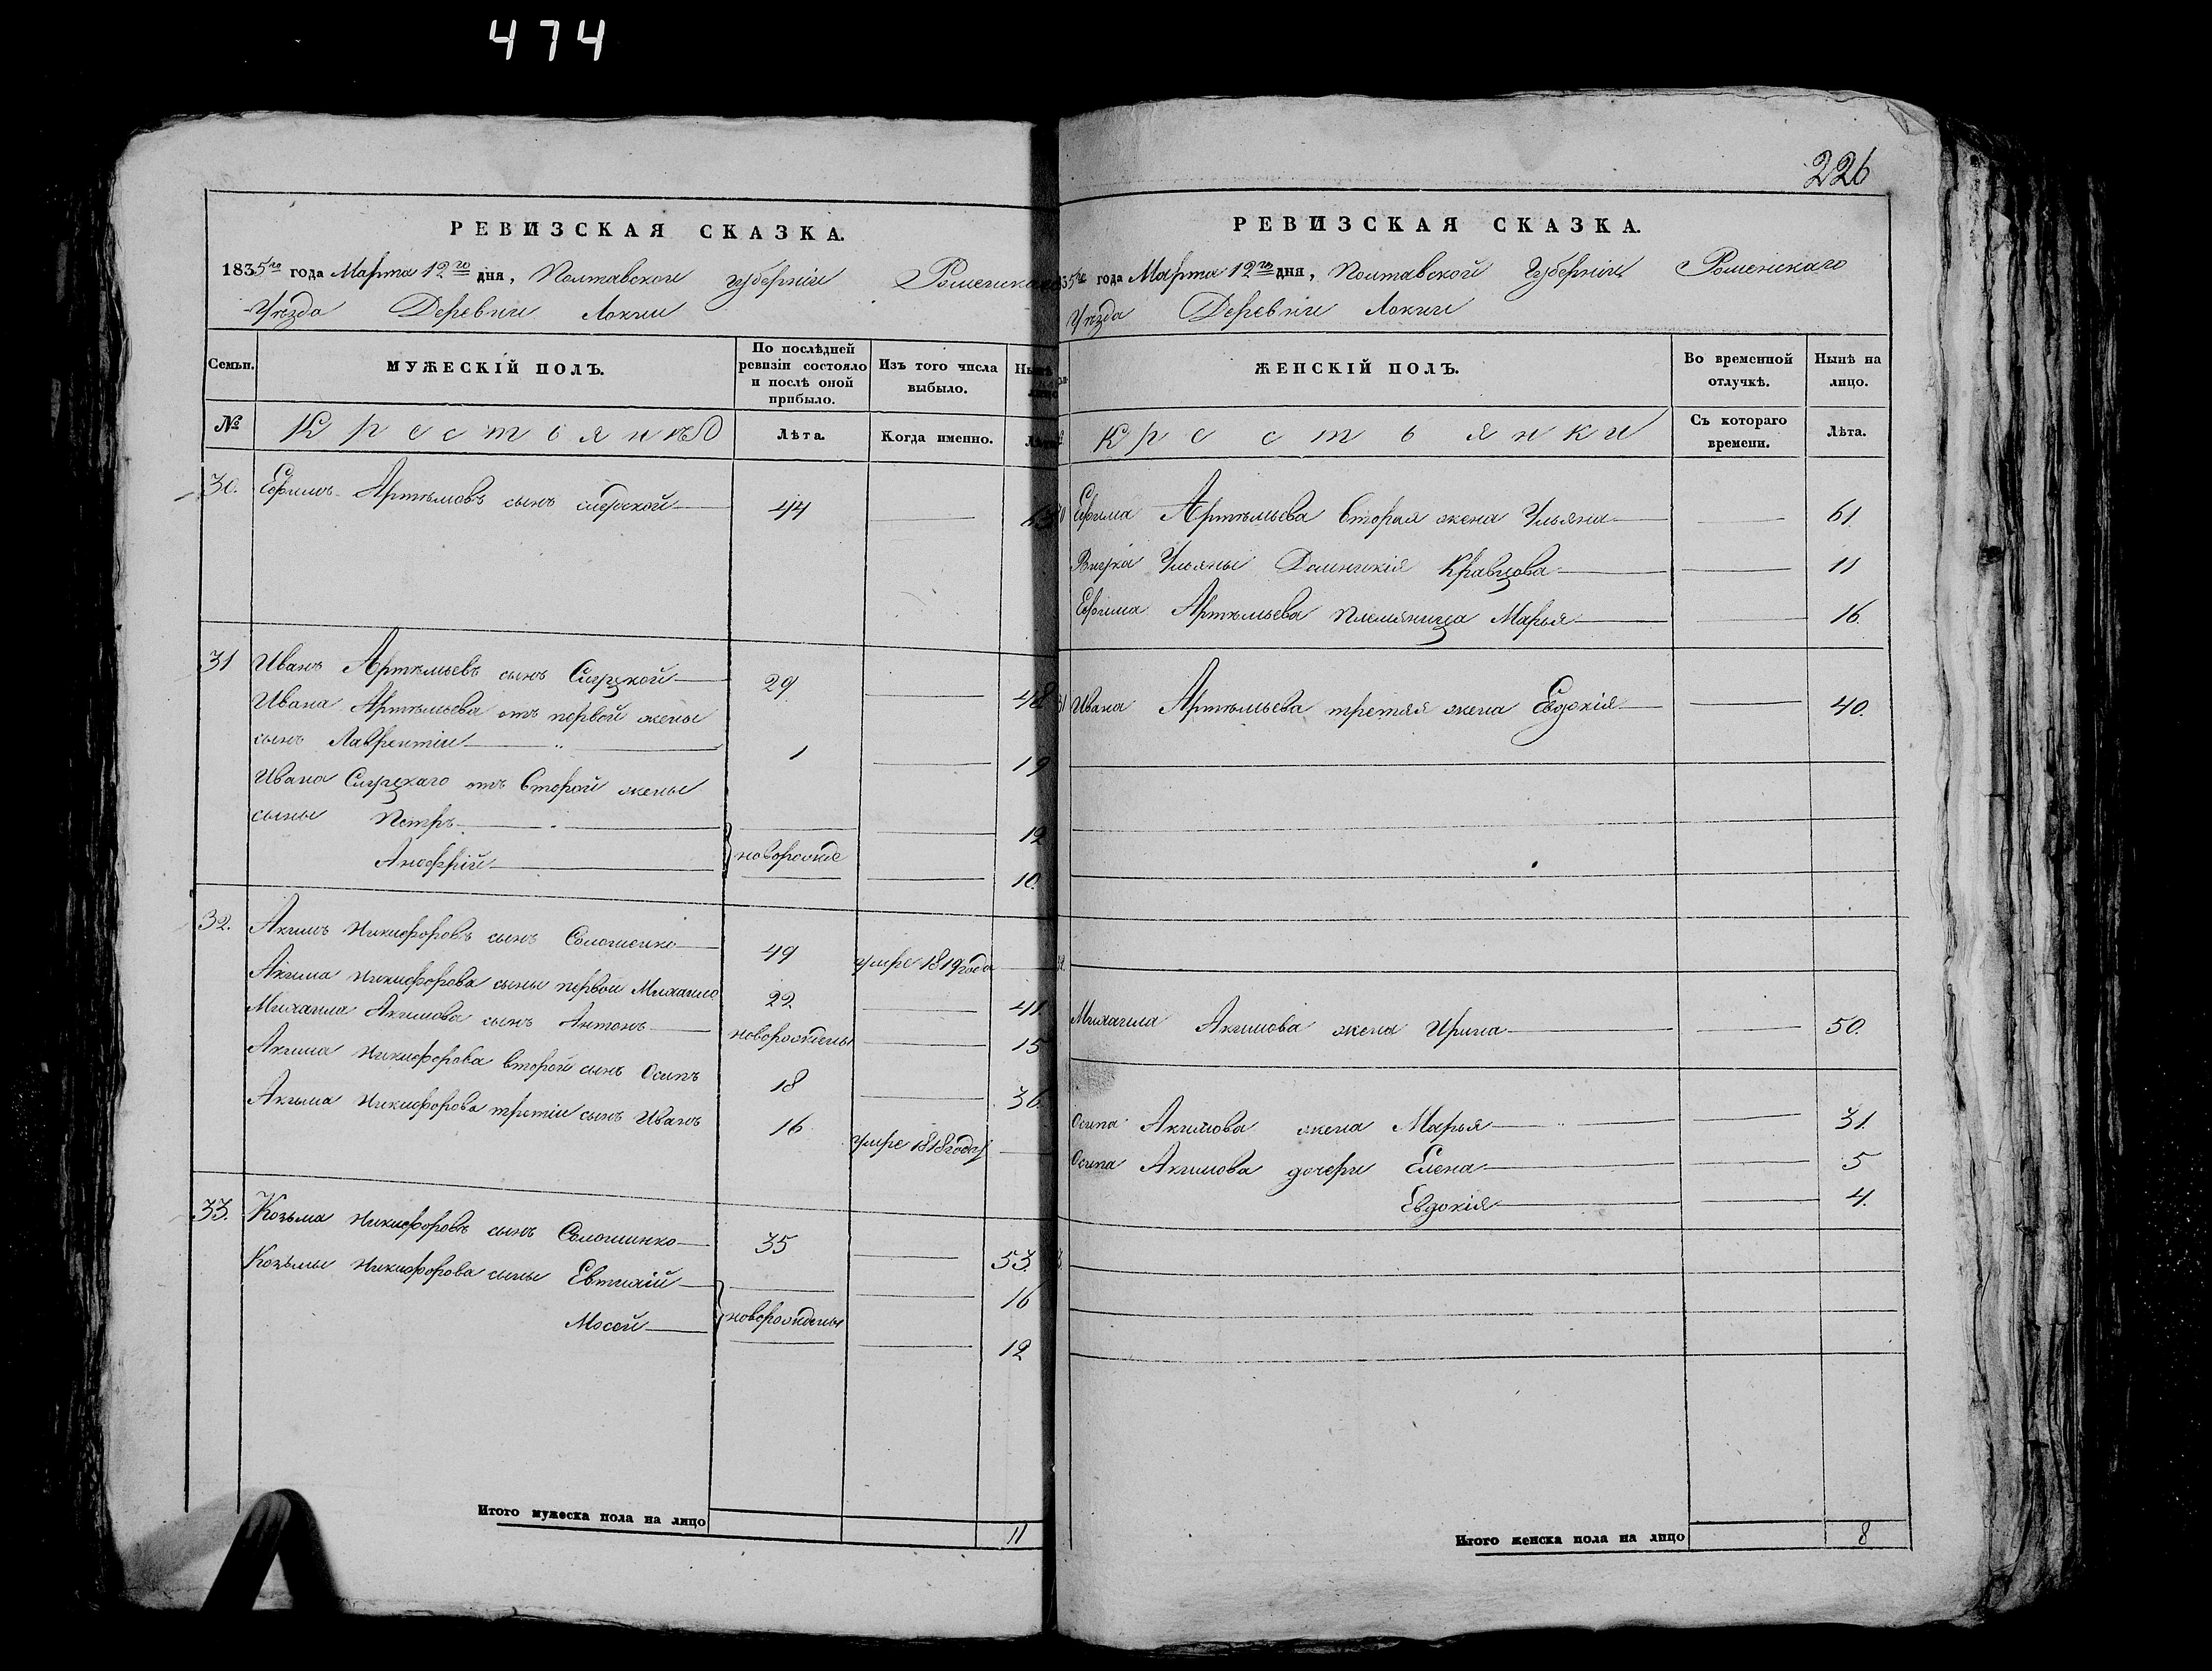 474
РЕВИЗСКАЯ СКАЗКА.
1835го года Марта 12го дня, Полтавской губернiи Роменскаго
Уезда Деревни Локни
Семьи. МУЖЕСКIЙ ПОЛЪ. По послѣдней ревизiи состояло и послѣ оной прибыло. Изъ того числа выбыло. Нынѣ на лицо
№ Крестьянъ Лѣта. Когда именно. Лѣта
30. Ефимъ Артемовъ сынъ 44 63
31 Иванъ Артемьевъ сынъ 29 48
Ивана Артемьева отъ первой жены
сынъ Лаврентiи 1 19
Ивана отъ второй жены
сыны Петръ 12
Аноффрiй новорожде 10.
32. Акимъ Никифоровъ сынъ Соломенко 49 умре 1819 года
Акима Никифорова сыны первои Михаило 22 41
Михаила Акимова сынъ Антонъ новорождены 15
Акима Никифорова второй сынъ Осипъ 18 36.
Акима Никифорова третiи сынъ Иванъ 16 умре 1818 года
33. Козьма Никифоровъ сынъ 35 53.
Козьмы Никифорова сыны Евтихiй 16
Мосей новорожденые 12
Итого мужеска пола на лицо 11
226
РЕВИЗСКАЯ СКАЗКА.
35го года Марта 12го дня, Полтавской Губернiи Роменскаго
Уезда Деревни Локни
ЖЕНСКIЙ ПОЛЪ. Во временной отлучкѣ. Нынѣ на лицо.
Крестьянки Съ котораго времени. Лѣта.
Ефима Артемьева вторая жена Ульяна 61.
Внучка Ульяны Домникiя Кравцова 11
Ефима Артемьева племяница Марья 16.
Ивана Артемьева третяя жена Евдокiя 40.
Михаила Акимова жена Ирина 50.
Осипа Акимова жена Марья 31.
Осипа Акимова дочери Елена 5
Евдокiя 4.
Итого женска пола на лицо 8